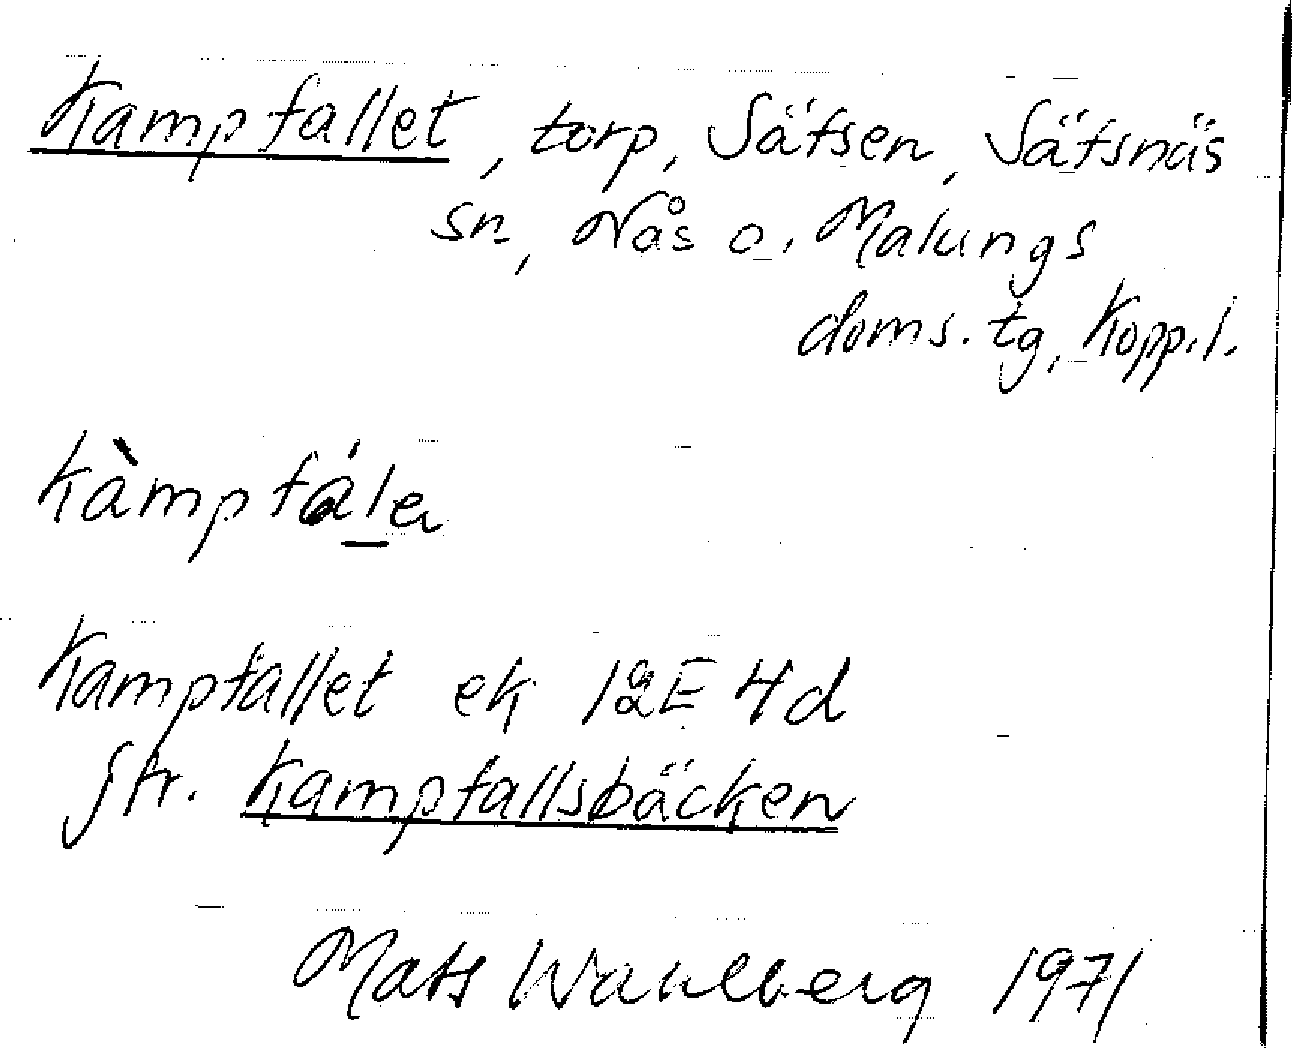 Kampfallet, torp, Säfsen, Säfsnäs
sn, Nås o. Malungs
doms. tg, Kopp.l.
kàmpfáler
Kampfallet ek 12E 4d
Jfr. Kampfallsbäcken
Mats Wahlberg 1971